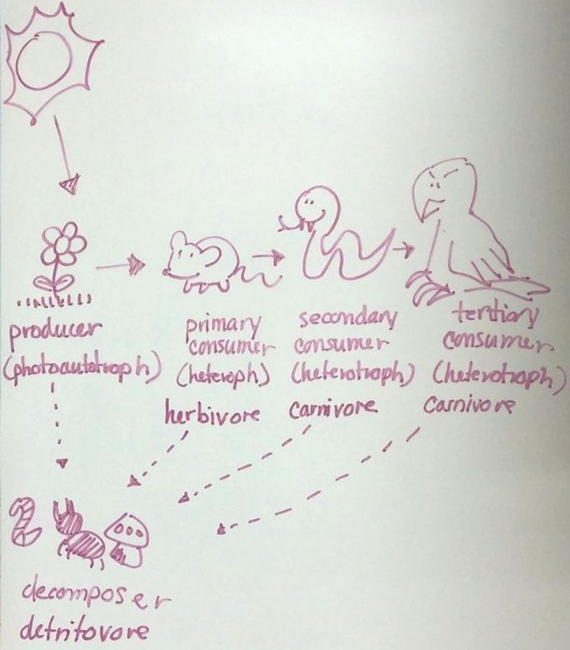 producer
(photoautotroph)
primary
consumer
(heteroph)
herbivore
secondary
consumer
(heterotroph)
carnivore
tertiary
consumer
(heterotroph)
carnivore
decomposer
detritovore